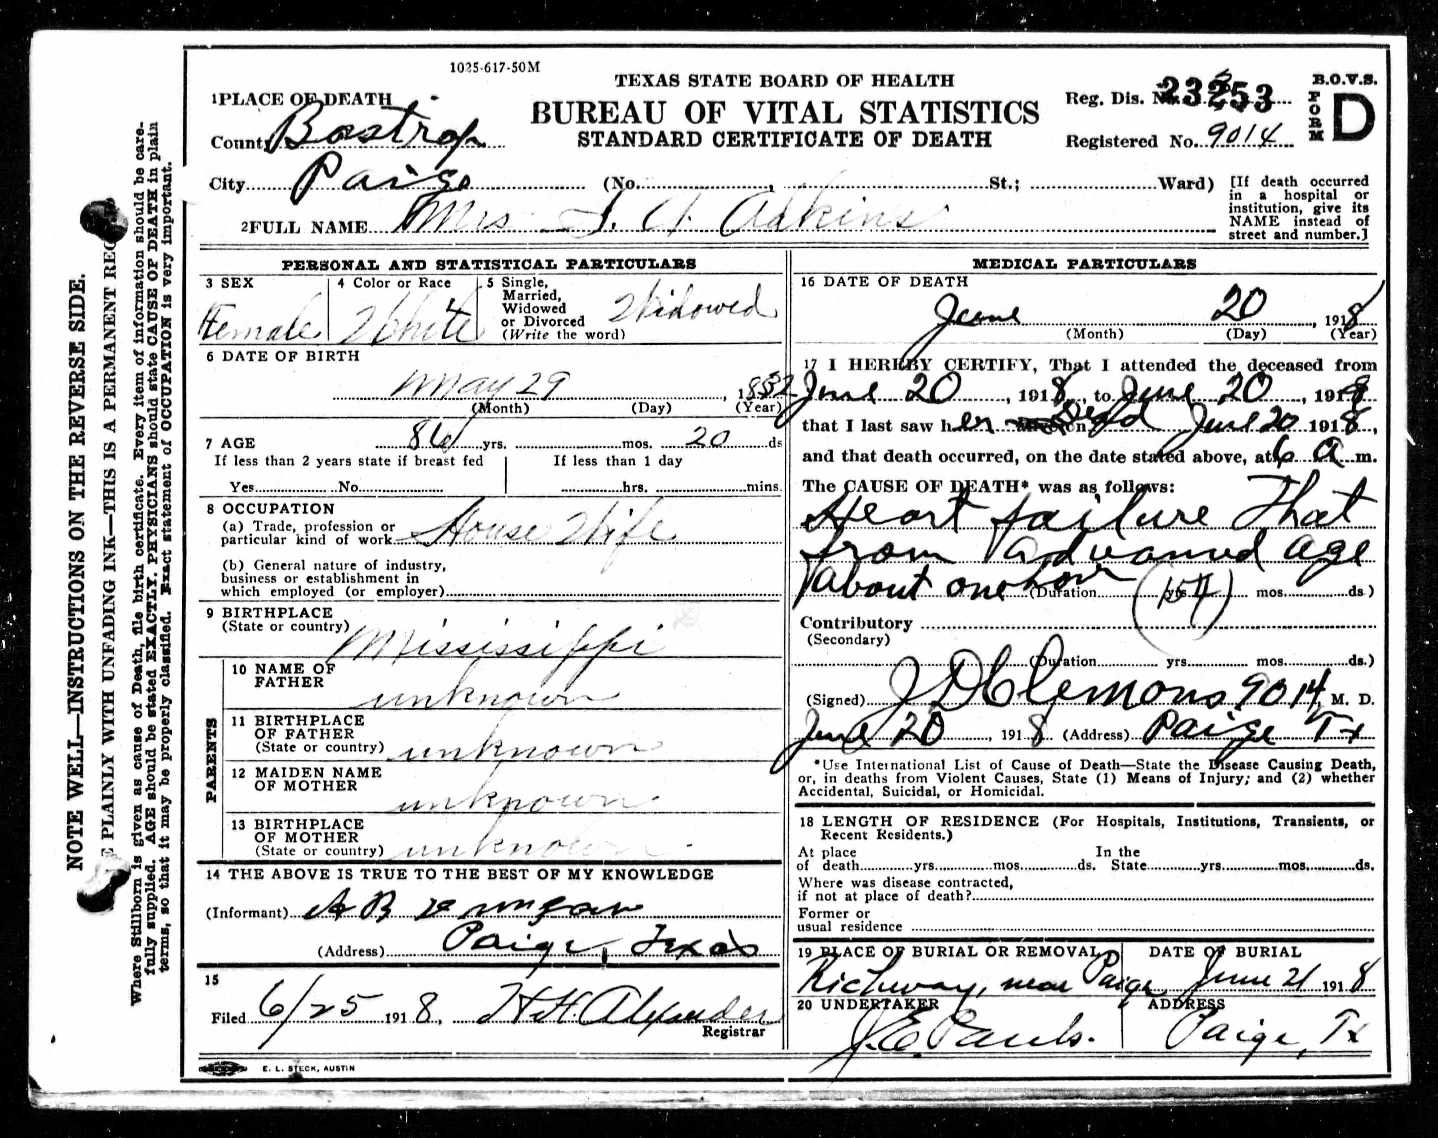 1025-617-50M
TEXAS STATE BOARD OF HEALTH
BUREAU OF VITAL STATISTICS
STANDARD CERTIFICATE OF DEATH
Reg. Dis. No. 23253
Registered No. 9014
B.O.V.S.
FORM D
1 PLACE OF DEATH
County Bastrop
City Paige (No. , St.; Ward)
[If death occurred
in a hospital or
institution, give its
NAME instead of
street and number.]
2 FULL NAME Mrs Adkins
PERSONAL AND STATISTICAL PARTICULARS
3 SEX
Female
4 Color or Race
White
5 Single,
Married,
Widowed
or Divorced
(Write the word)
Widowed
6 DATE OF BIRTH
May 29, 1832
(Month) (Day) (Year)
7 AGE
86 yrs. mos. 20 ds
If less than 2 years state if breast fed
Yes No
If less than 1 day
hrs. mins.
8 OCCUPATION
(a) Trade, profession or
particular kind of work House Wife
(b) General nature of industry,
business or establishment in
which employed (or employer)
9 BIRTHPLACE
(State or country) Mississippi
PARENTS
10 NAME OF
FATHER unknown
11 BIRTHPLACE
OF FATHER
(State or country) unknown
12 MAIDEN NAME
OF MOTHER unknown
13 BIRTHPLACE
OF MOTHER
(State or country) unknown
14 THE ABOVE IS TRUE TO THE BEST OF MY KNOWLEDGE
(Informant) A B
(Address) Paige, Texas
15
Filed 6/25 1918, H.H. Alexander
Registrar
MEDICAL PARTICULARS
16 DATE OF DEATH
June 20, 1918
(Month) (Day) (Year)
17 I HEREBY CERTIFY, That I attended the deceased from
June 20, 1918, to June 20, 1918
that I last saw her Dead on June 20 1918,
and that death occurred, on the date stated above, at 6 A m.
The CAUSE OF DEATH* was as follows:
Heart failure That
from advanced age
about one hour (Duration yrs. mos. ds.)
(154)
Contributory
(Secondary)
(Duration yrs. mos. ds.)
(Signed) J D Clemons 9014, M. D.
June 20, 1918 (Address) Paige Tx
*Use International List of Cause of Death—State the Disease Causing Death,
or, in deaths from Violent Causes, State (1) Means of Injury; and (2) whether
Accidental, Suicidal, or Homicidal.
18 LENGTH OF RESIDENCE (For Hospitals, Institutions, Transients, or
Recent Residents.)
At place
of death yrs. mos. ds.
In the
State yrs. mos. ds.
Where was disease contracted,
if not at place of death?
Former or
usual residence
19 PLACE OF BURIAL OR REMOVAL
near Paige
DATE OF BURIAL
June 21 1918
20 UNDERTAKER
J.E. Pauls.
ADDRESS
Paige, Tx
E. L. STECK, AUSTIN
NOTE WELL—INSTRUCTIONS ON THE REVERSE SIDE.
PLAINLY WITH UNFADING INK—THIS IS A PERMANENT REC
Where Stillborn is given as cause of Death, file birth certificate. Every item of information should be care-
fully supplied. AGE should be stated EXACTLY. PHYSICIANS should state CAUSE OF DEATH in plain
terms, so that it may be properly classified. Exact statement of OCCUPATION is very important.